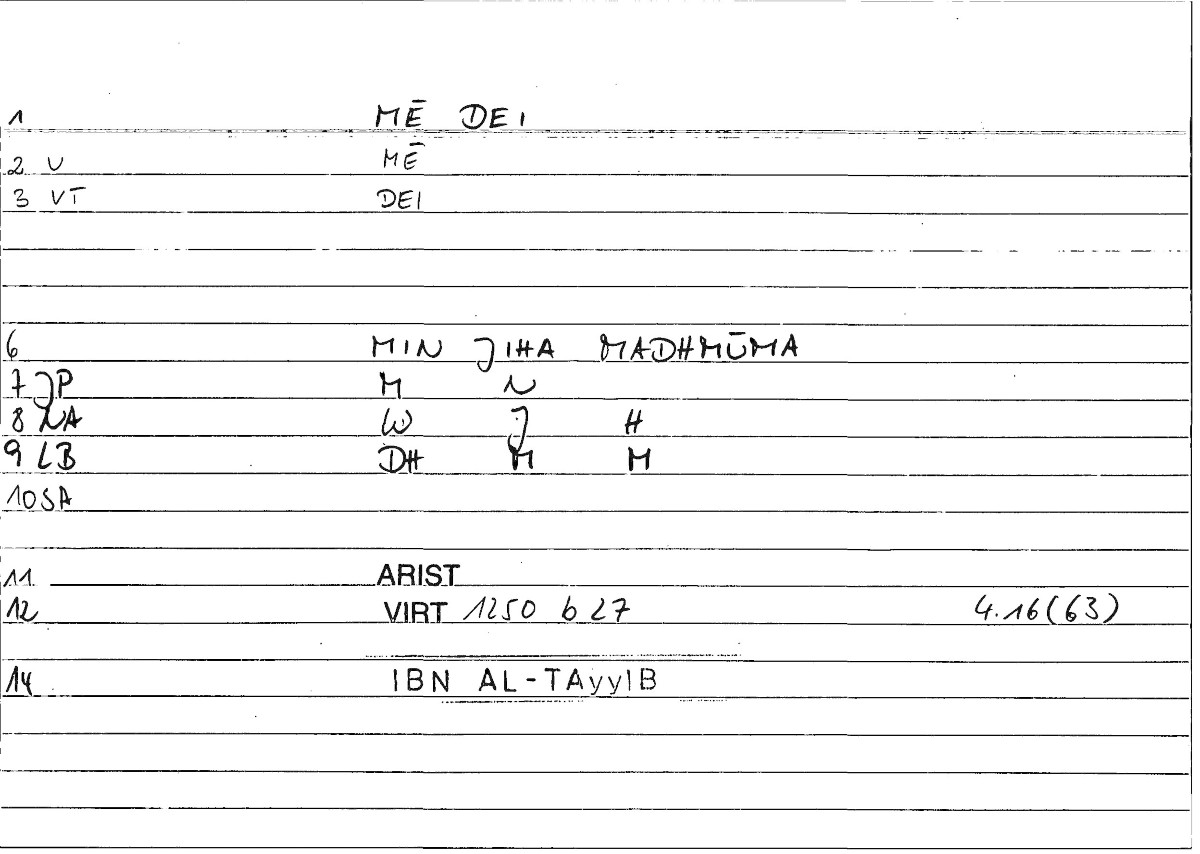 1 MĒ DEI
2 V MĒ
3 VT DEI
6 MIN JIHA MADHMŪMA
7 JP M N
8 NA W J H
9 LB DH M M
10 SA
11. ARIST
12 VIRT 1250 b 27 4.16(63)
14 IBN AL-TAyyIB